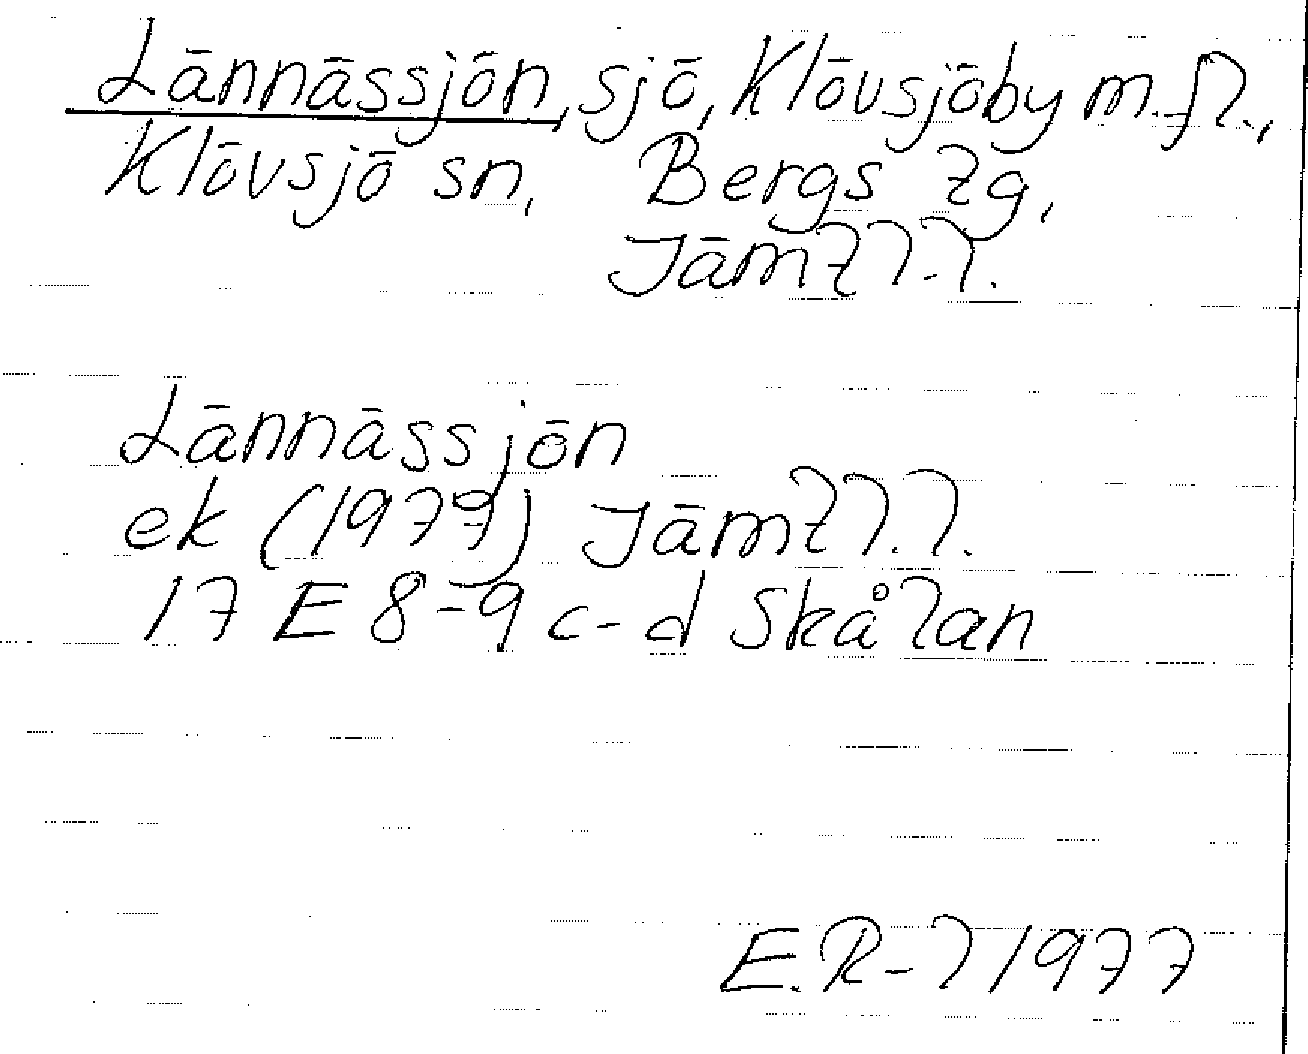 Lännässjön, sjö, Klövsjöby m.fl.,
Klövsjö sn, Bergs tg,
Jämtl.l.
Lännässjön
ek (1977) Jämtl.l.
17 E 8-9 c-d Skålan
E.R-l 1977